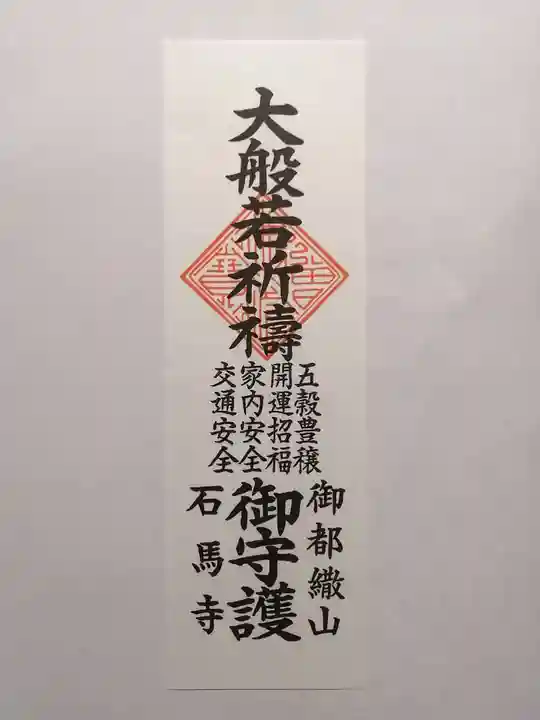 大般若祈禱
五穀豊穣
開運招福
家内安全
交通安全
御守護
御都繖山
石馬寺